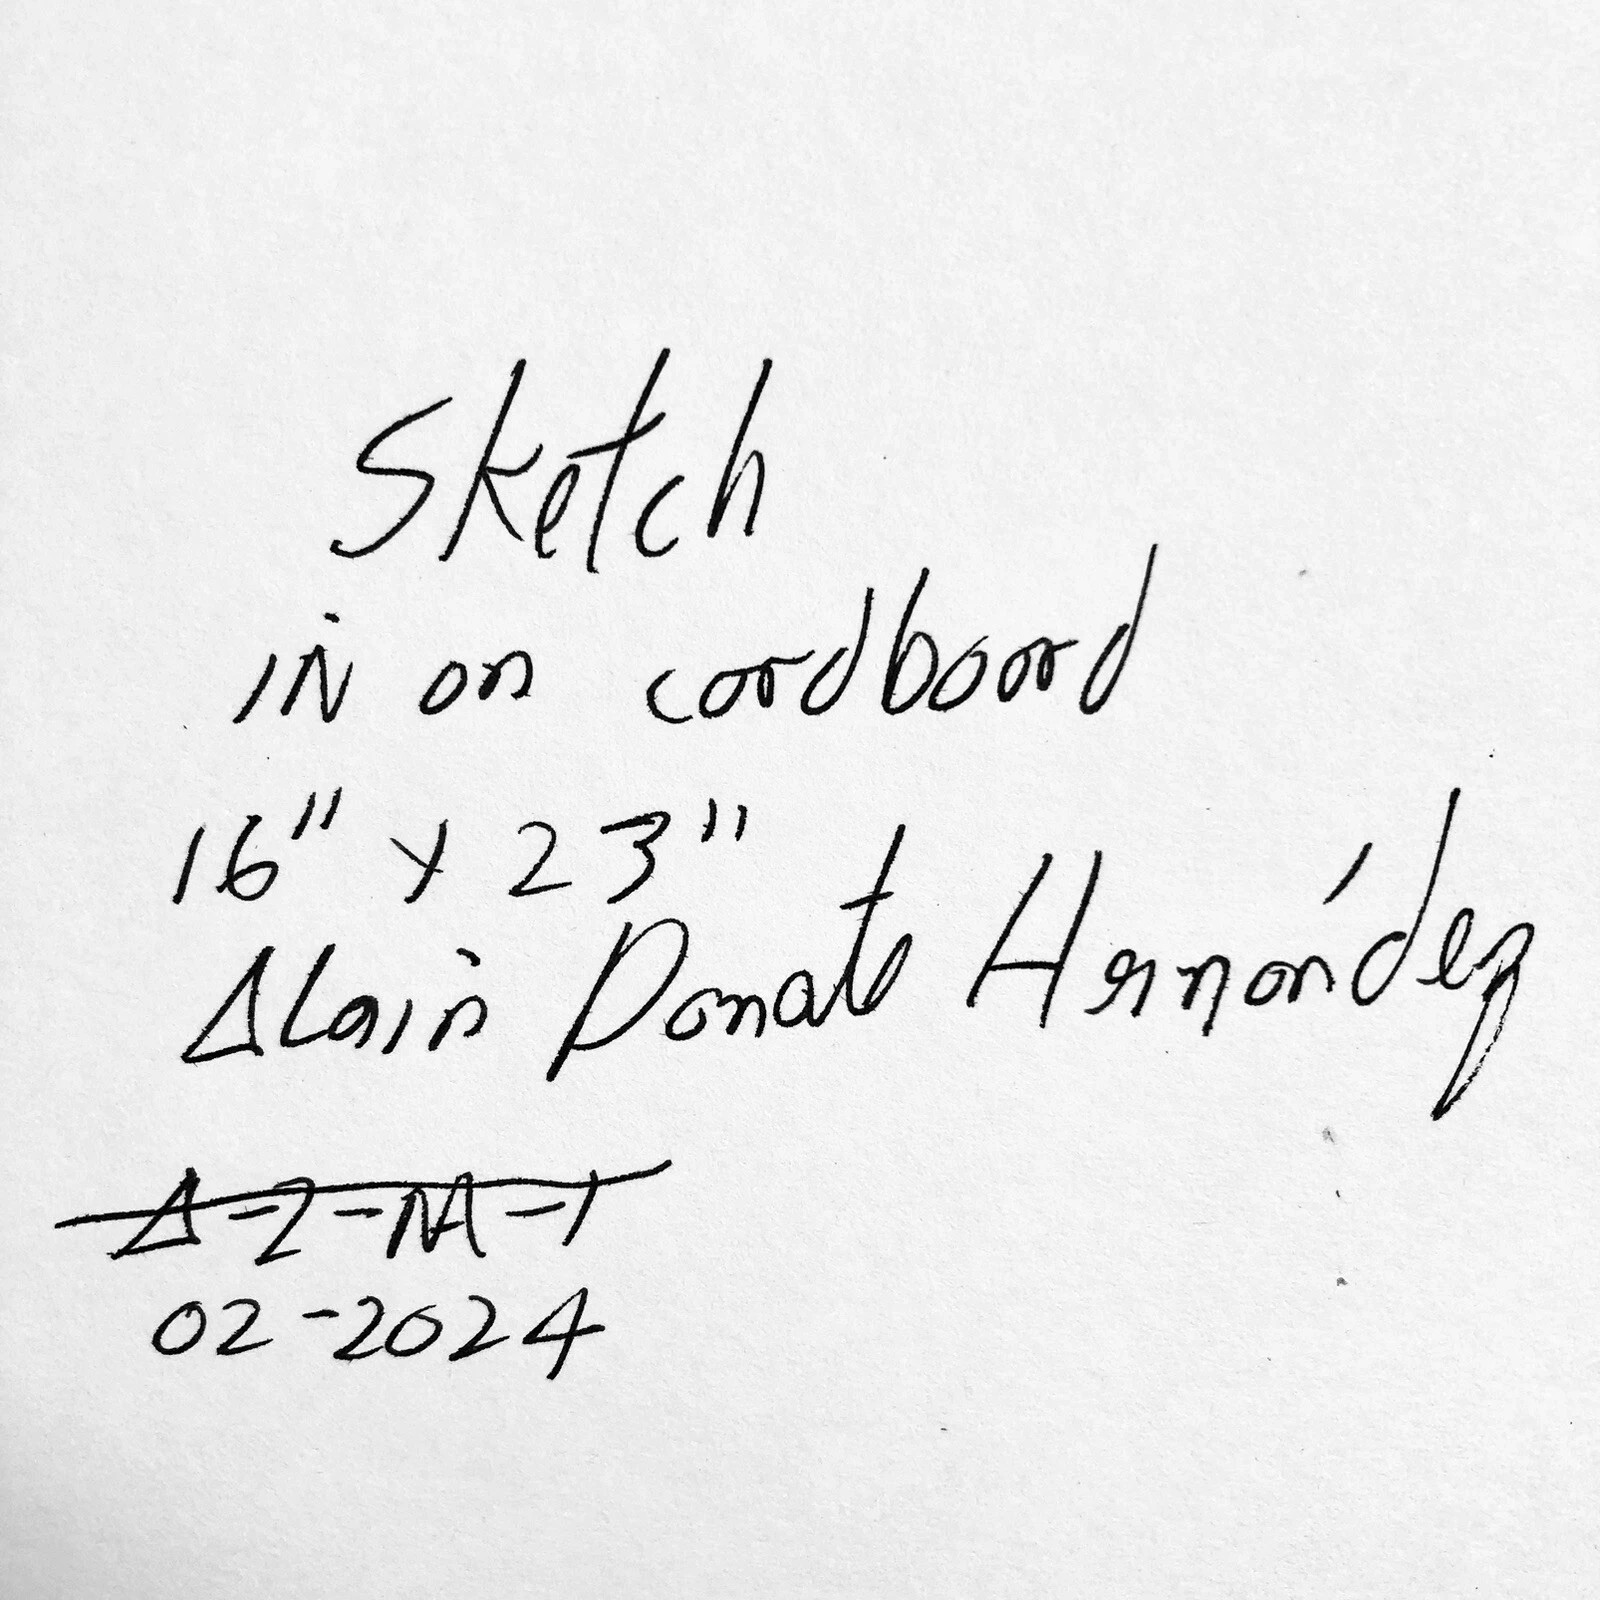 Sketch
in on cardboard
16" x 23"
Alain Donate Hernández
A-2-M-1
02-2024